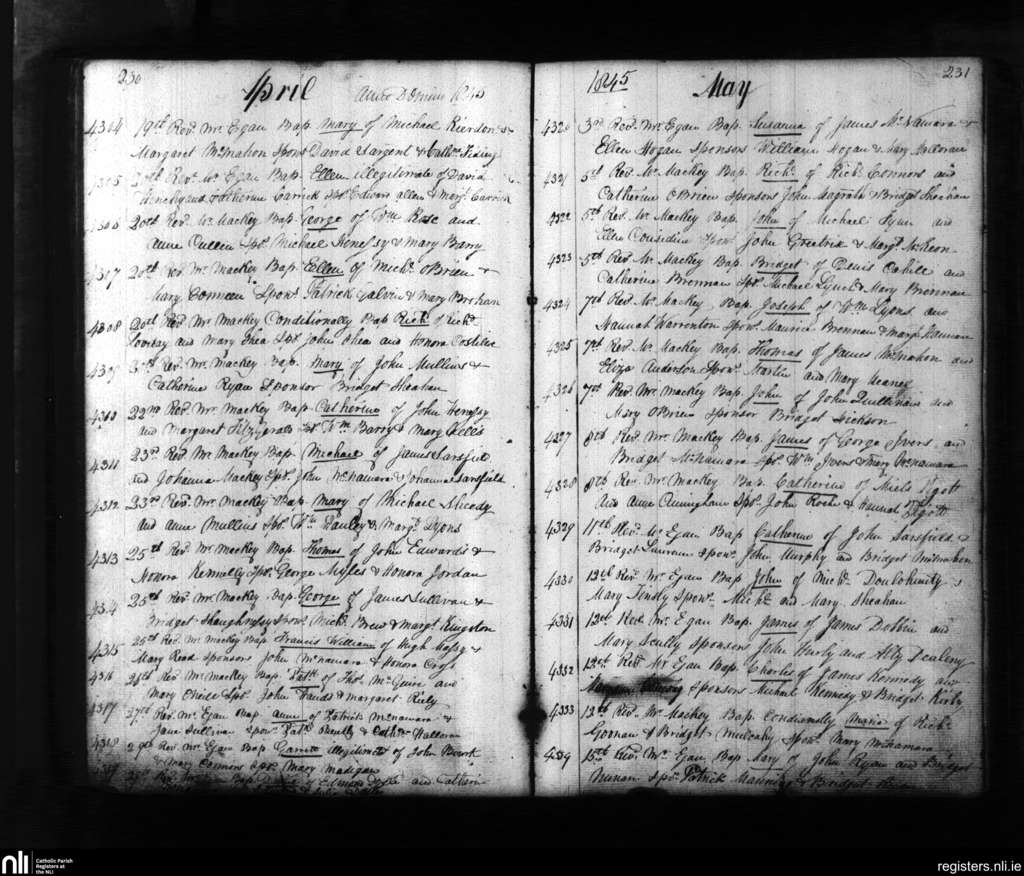 230
April Anno Domini 1845
4304 19th Revd. Mr. Egan Bap. Mary of Michael Rierdon &
Margaret McMahon Spons. David Sargent & Cathe.
Revd. Mr. Egan Bap. Ellen illegitimate of David
and Catherine Carrick Sps. Edward allen & Margt. Carrick
20th Revd. Mr. Mackey Bap. George of Wm. Rose and
Anne Cullen Sps. Michael Henessy & Mary Barry
4307 20th Revd. Mr. Mackey Bap. Ellen of Michl. OBrien &
Mary Spons. Patrick Galvin & Mary
4308 20th Revd. Mr. Mackey Conditionally Bap. Richd. of Richd.
and Mary Shea Sps. John Shea and Honora Costelloe
4309 Revd. Mr. Mackey Bap. Mary of John Mullins &
Catherine Ryan Sponsor Bridget Sheahan
4310 22nd Revd. Mr. Mackey Bap. Catherine of John Henessy
and Margaret Fitzgerald Sps. Wm. Barry & Mary
4311 23rd Revd. Mr. Mackey Bap. Michael of James Sarsfield
and Johanna Mackey Sps. John McNamara & Johanna Sarsfield
4312 23rd Revd. Mr. Mackey Bap. Mary of Michael Sheedy
and anne Mullins Sps. Wm. & Margt. Lyons
4313 25th Revd. Mr. Mackey Bap. Thomas of John Edwards &
Honora Kennelly Sps. George Myles & Honora Jordan
4314 25th Revd. Mr. Mackey Bap. George of James Sullivan &
Bridget Shaughnessy Spons. Michl. Brew & Margt. Kingdon
4315 25th Revd. Mr. Mackey Bap. Francis William of Hugh Massy &
Mary Read Sponsors John McNamara & Honora Cross
4316 Revd. Mr. Mackey Bap. Patk. of McGuire and
Mary ONeile Sps. John & Margaret Riely
4317 27th Revd. Mr. Egan Bap. anne of Patrick McNamara &
Jane Sullivan Spons. Patk. & Cathe. Halloran
4318 29th Revd. Mr. Egan Bap. Garrett illegitimate of John
& Mary Connors Sps. Mary Madigan
Revd. Bap. of Edmond and Catherine
1845 May 231
4320 3rd Revd. Mr. Egan Bap. Susanna of James McNamara &
Ellen Hogan Sponsors William Hogan & Mary
4321 5th Revd. Mr. Mackey Bap. Richd. of Richd. Connors and
Catherine OBrien Sponsors John Magrath & Bridget Sheehan
4322 5th Revd. Mr. Mackey Bap. John of Michael and
Ellen Considine Spons. John & Margt. McKeon
4323 5th Revd. Mr. Mackey Bap. Bridget of Denis Cahill and
Catherine Brennan Sps. Michael Lynch & Mary Brennan
4324 7th Revd. Mr. Mackey Bap. Joseph of Wm. Lyons and
Hannah Warrenton Spons. Maurice Brennan & Margt.
4325 7th Revd. Mr. Mackey Bap. Thomas of James McMahon and
Eliza Anderson Spons. Martin and Mary Heaney
4326 7th Revd. Mr. Mackey Bap. John of John Quillinan and
Mary OBrien Sponsor Bridget
4327 8th Revd. Mr. Mackey Bap. James of George Ivers and
Bridget McNamara Sps. Wm. Ivers & Mary McNamara
4328 8th Revd. Mr. Mackey Bap. Catherine of Miels Pigott
and anne Cuningham Sps. John Roch & Hannah Pigott
4329 11th Revd. Mr. Egan Bap. Catherine of John Sarsfield &
Bridget Spons. John Murphy and Bridget McMahon
4330 12th Revd. Mr. Egan Bap. John of Michl. &
Mary Spons. Michl. and Mary Sheahan
4331 12th Revd. Mr. Egan Bap. James of James Dobbin and
Mary Scully Sponsors John Hurly and
4332 12th Revd. Mr. Egan Bap. Charles of James Kennedy and
Sponsors Michael Kennedy & Bridget Kirby
4333 13th Revd. Mr. Mackey Bap. Conditionally Maria of Richd.
Goonan & Bridget Mulcahy Spons. Mary McNamara
15th Revd. Mr. Egan Bap. Mary of John Ryan and Bridget
Sps. Patrick & Bridget
nli Catholic Parish
Registers at
the NLI
registers.nli.ie